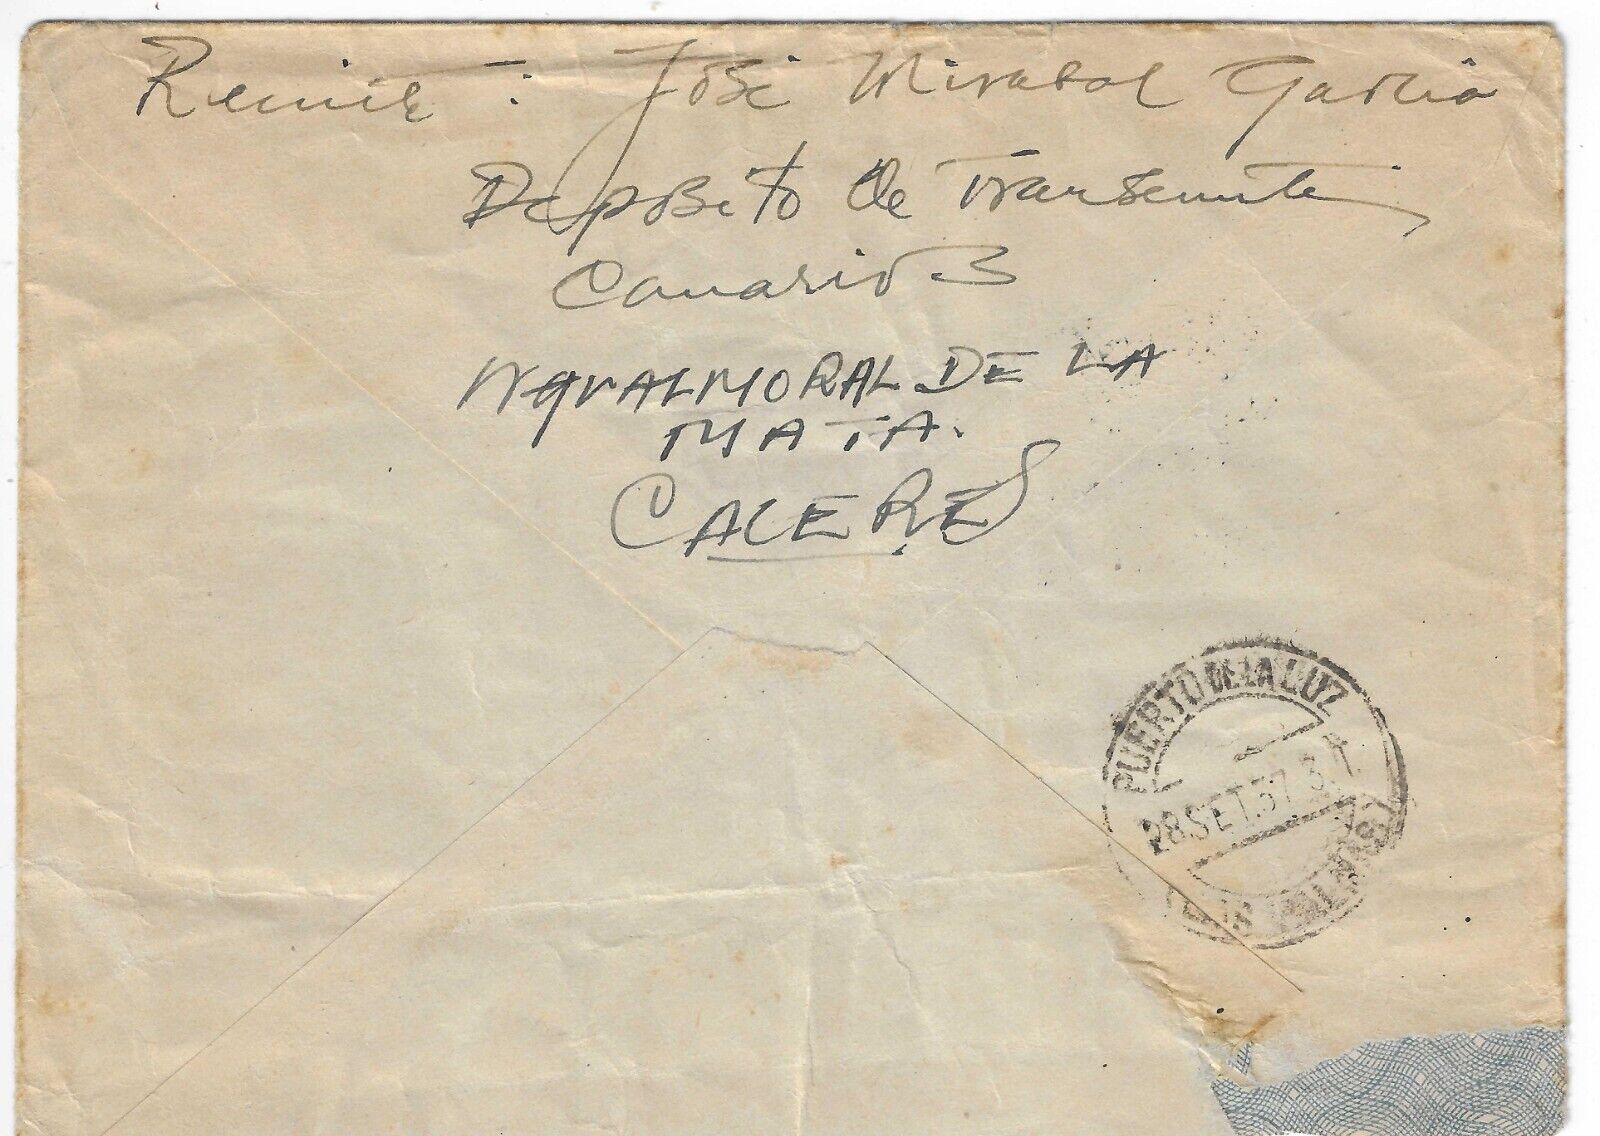 Remite : José Mirabal Garcia
Deposito de Transeunte
Canario 3
NAVALMORAL DE LA
MATA.
CACERES
PUERTO DE LA LUZ
28 SET. 37 3 T.
(LAS PALMAS)